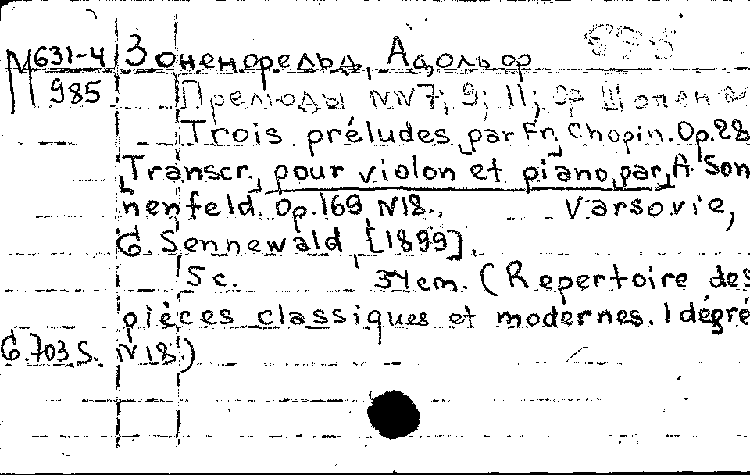 М631-4 Зоненфельд, Адольф
985 Прелюды NN7; 9; 11; Фр Шопена
Trois préludes par Fr. Chopin. Op.28
Transcr. pour violon et piano par A Son
nenfeld. Op.169 N18. Varsovie,
G. Sennewald [1899].
5 c. 34 cm. (Repertoire des
pièces classiques et modernes. I dégré
G.703S. N18.)